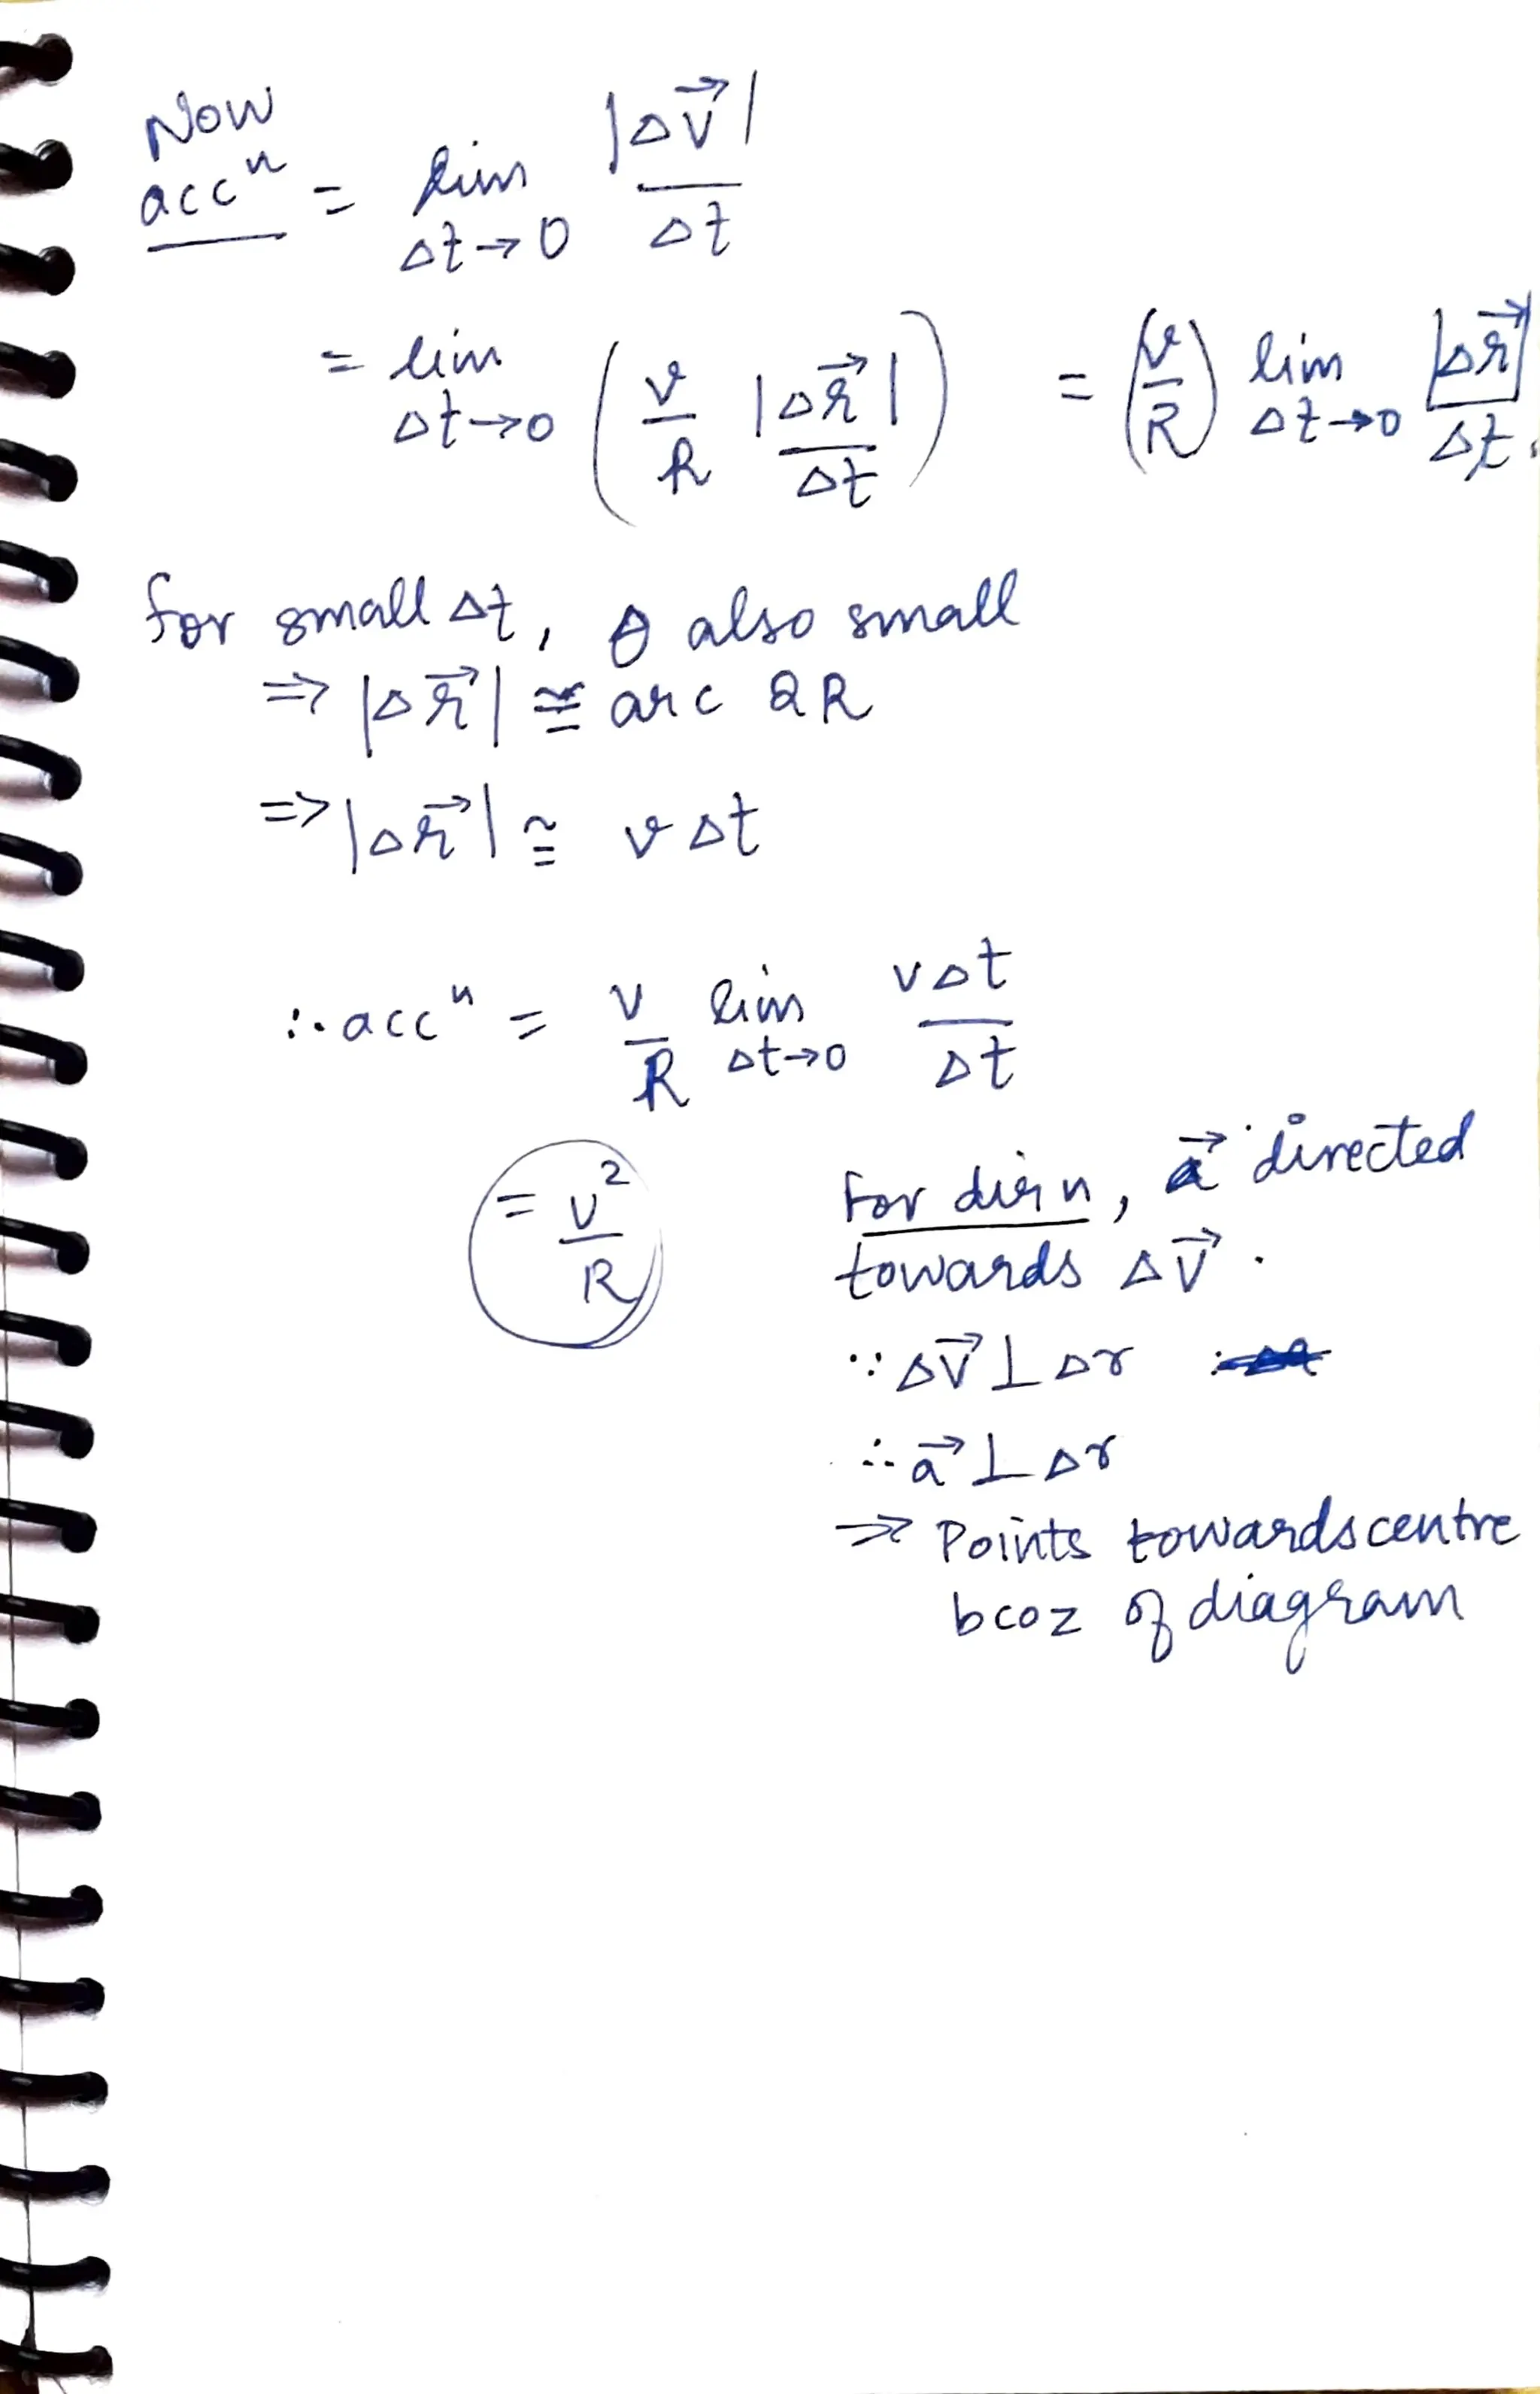 Now
accⁿ = lim Δt→0 |Δv⃗| / Δt
= lim Δt→0 ( v/R |Δr⃗| / Δt ) = (v/R) lim Δt→0 |Δr⃗| / Δt.
for small Δt, θ also small
=> |Δr⃗| ≅ arc QR
=> |Δr⃗| ≅ vΔt
∴ accⁿ = v/R lim Δt→0 vΔt / Δt
= v²/R
For dirn, a⃗ directed
towards Δv⃗.
∵ Δv⃗ ⊥ Δr
∴ a⃗ ⊥ Δr
=> Points towards centre
bcoz of diagram